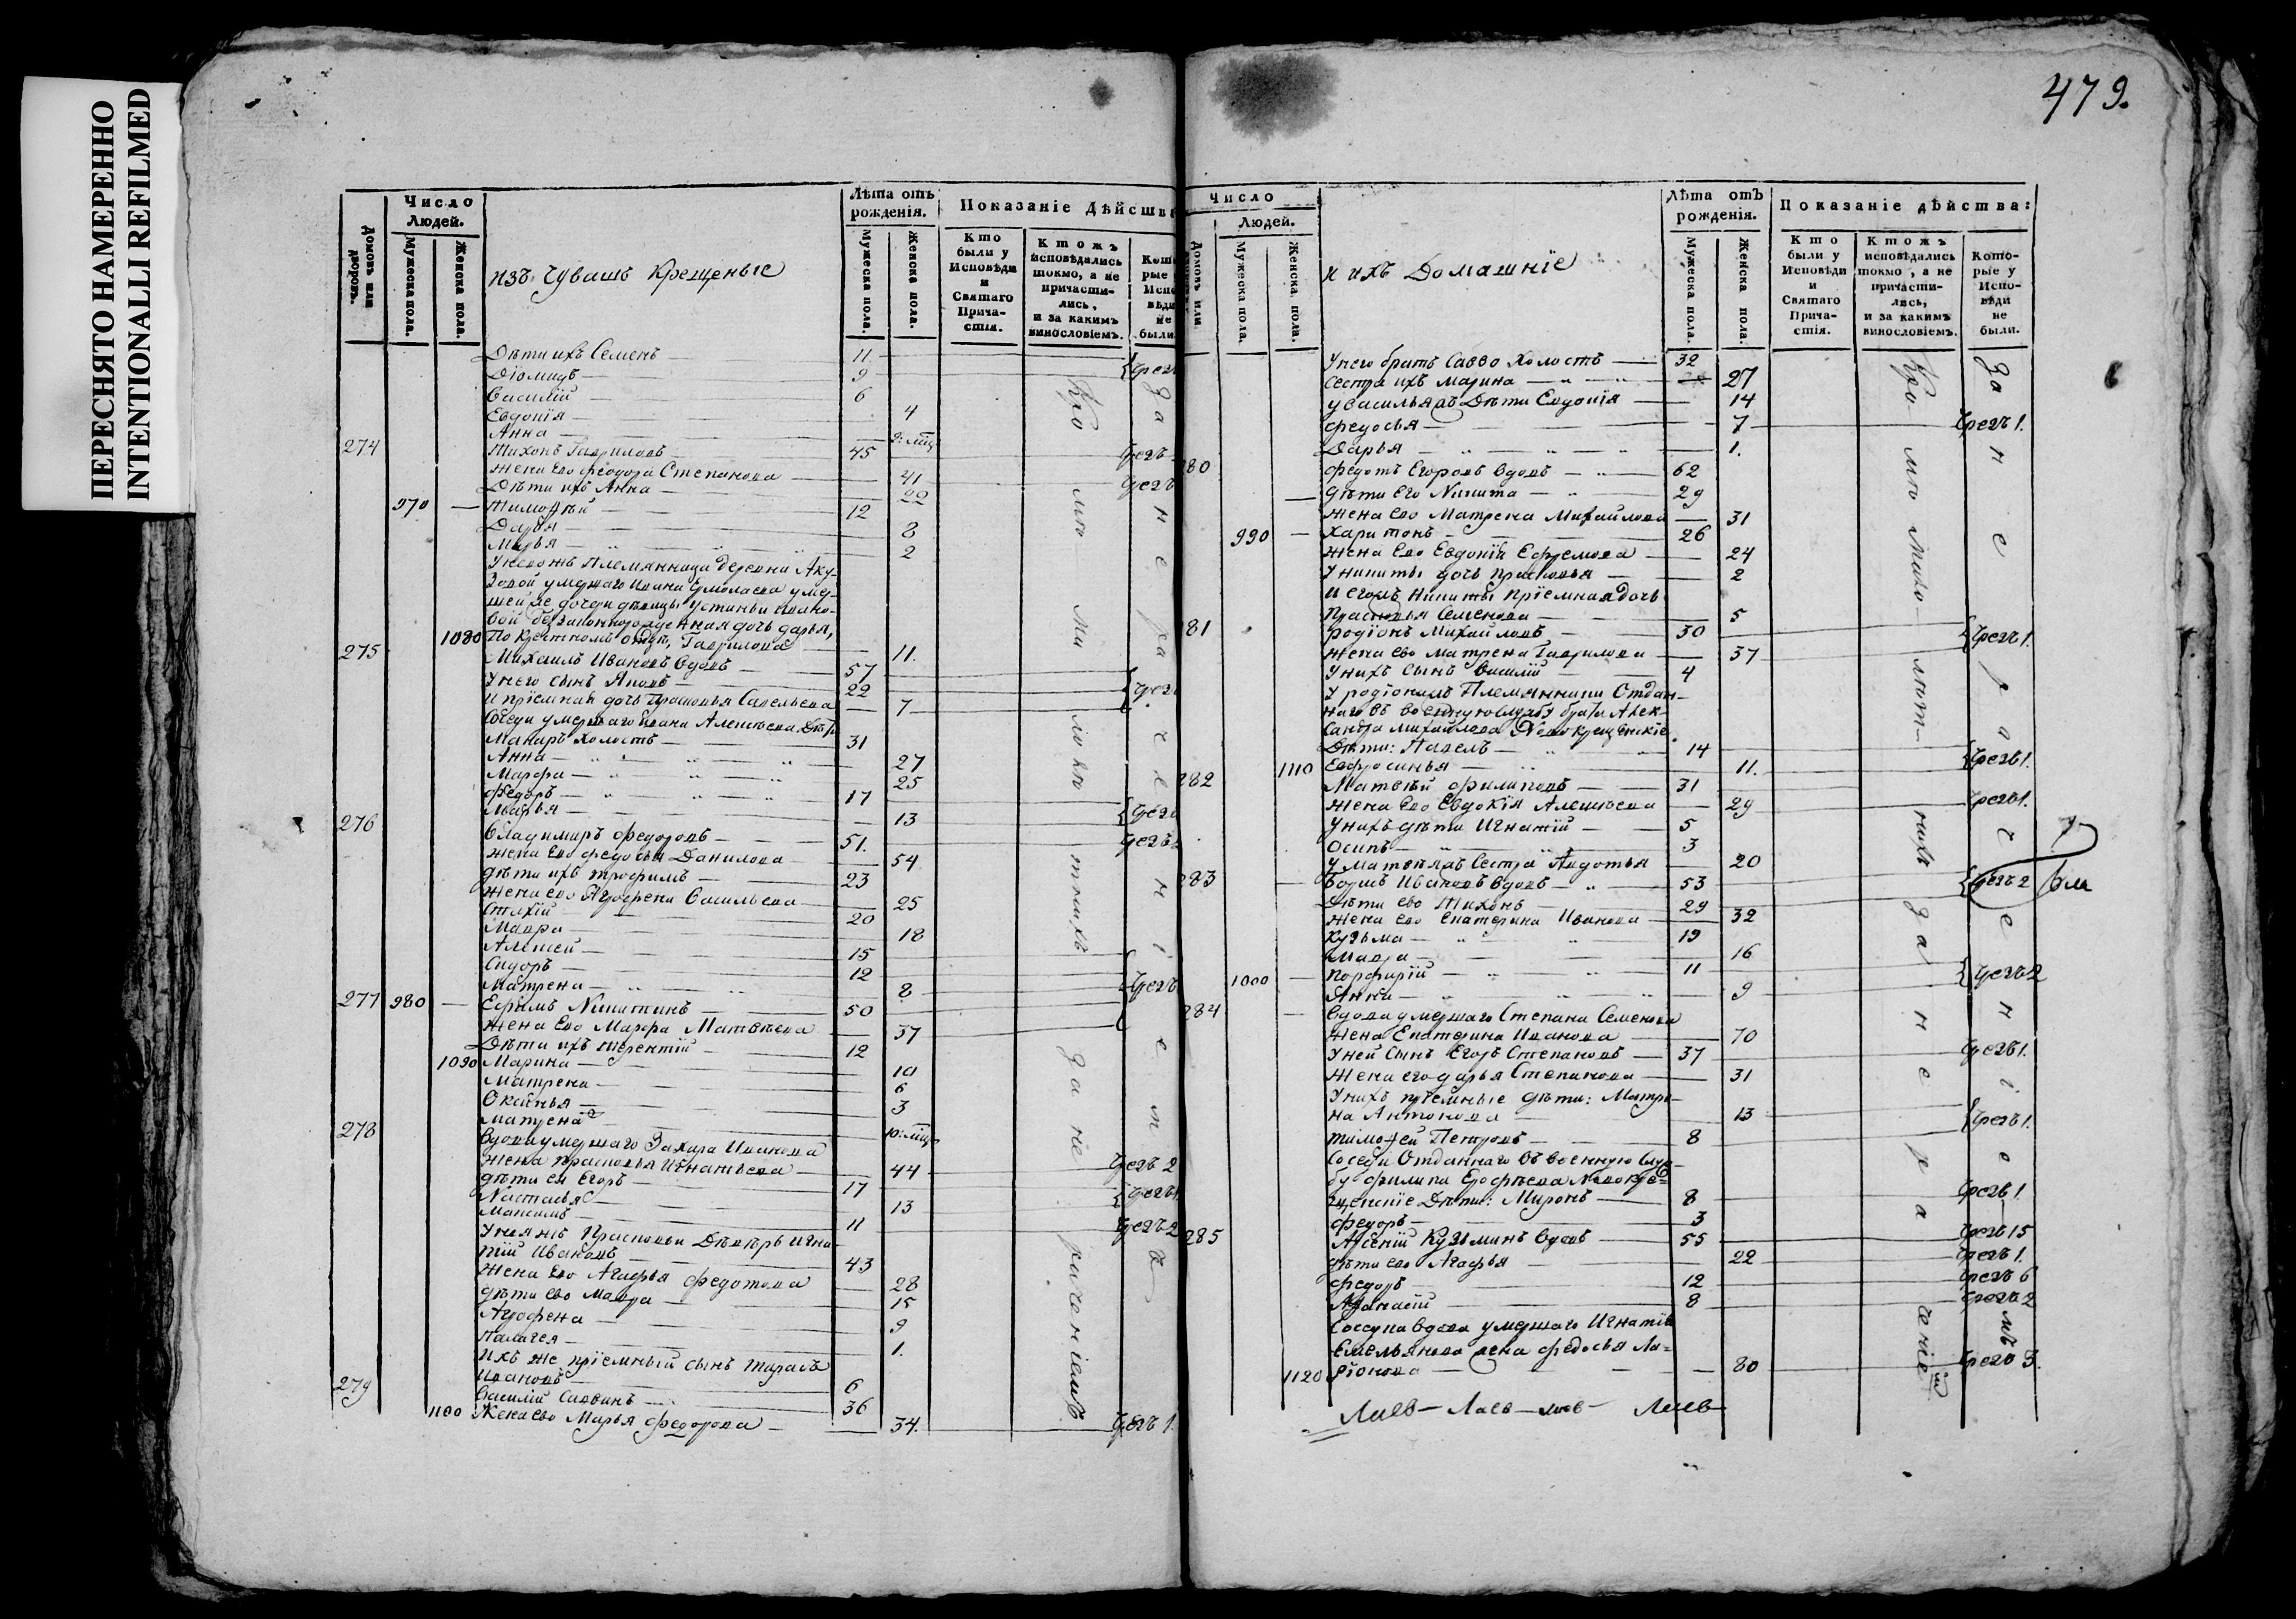 ПЕРЕСНЯТО НАМЕРЕННО
INTENTIONALLI REFILMED
479.
Домовъ или дворовъ.
Число Людей.
Мужеска пола.
Женска пола.
изъ Чувашъ Крещеные
Лѣта отъ рожденія.
Мужеска пола.
Женска пола.
Показаніе Дѣйства
Кто были у Исповѣди и Святаго Причастія.
Ктожъ исповѣдались токмо, а не причастились, и за какимъ винословіемъ.
Дѣти ихъ Семенъ 11
Діомидъ 9
Василій 6
Евдокія 4
Анна 9: мцъ
274 Тихонъ Гавриловъ 45
Жена Ево Феодора Степанова 41
Дѣти ихъ Анна 22
970 Тимофѣй 12
Дарья 8
Марья 2
У него жъ Племянница деревни Аку-
зовой умершаго Ивана Ермолаева умер-
шей же дочери дѣвицы Устиньи Ивано-
вой беззаконнорожденная дочь дарья,
1080 По Крестномъ отцѣ, Гаврилова 11.
275 Михаилъ Ивановъ вдовъ 57
У него сынъ Яковъ 22
И пріемная дочь Прасковья Савельева 7
Соседи умершаго Ивана Алексѣева Дѣти
Макаръ Холостъ 31
Анна 27
Марфа 25
Федоръ 17
Марья 13
276 Владимиръ Федоровъ 51.
Жена Ево Федосья Данилова 54
дѣти ихъ Трофимъ 23
Жена ево Агрофена Васильева 25
Стахій 20
Мавра 18
Алексей 15
Сидоръ 12
Матрена 8
277 980 Ефимъ Никитинъ 50
Жена Ево Марфа Матвѣева 37
Дѣти ихъ Терентій 12
1090 Марина 10
Матрена 6
3
Матрена 10: мцъ
278 Вдова умершаго Захара Иванова
Жена прасковья Игнатьева 44 Чрезъ 2
дѣти ея Егоръ 17
Настасья 13
Максимъ 11 Чрезъ 2
У нея жъ Прасковьи Дѣверь Игна-
тій Ивановъ 43
Жена Ево Агафья Федотова 28
дѣти ево Мавра 15
Агрофена 9
Палагея 1.
Ихъ же пріемный сынъ Тарасъ
Ивановъ 6
279 Василій Саввинъ 36
1100 Жена ево Марья Федорова 34. Чрезъ 1.
Домовъ или
Число Людей.
Мужеска пола.
Женска пола.
и ихъ Домашніе
Лѣта отъ рожденія.
Мужеска пола.
Женска пола.
Показаніе дѣйства:
Кто были у Исповѣди и Святаго Причастія.
Ктожъ исповѣдались токмо, а не причастились, и за какимъ винословіемъ.
Которые у Исповѣди не были.
У него братъ Савво Холостъ 32
Сестра ихъ Марина 27
У Василья жъ Дѣти Евдокія 14
Федосья 7 Чрезъ 1.
Дарья 1.
280 Федотъ Егоровъ вдовъ 62
дѣти Его Никита 29
Жена Ево Матрена Михайлова 31
990 Харитонъ 26
Жена Ево Евдокія Ефремова 24
У никиты дочь прасковья 2
И егожъ Никиты пріемная дочь
Прасковья Семенова 5
281 Родіонъ Михайловъ 30 Чрезъ 1.
Жена ево Матрена Гаврилова 37
У нихъ сынъ Василій 4
У родіона жъ Племянники Отдан-
наго въ военную службу брата Алек-
сандра Михайлова Новокрещенскіе
Дѣти: Павелъ 14 Чрезъ 1.
1110 Евфросинья 11.
282 Матвѣй Филиповъ 31
Жена Ево Евдокія Алексѣева 29 Чрезъ 1.
У нихъ дѣти Игнатій 5
Осипъ 3
У Матвѣя жъ Сестра Авдотья 20
283 Ивановъ вдовъ 53 Чрезъ 2
Дѣти ево Тихонъ 29
Жена ево Екатерина Иванова 32
Кузьма 19
Мавра 16
1000 Порфирій 11 Чрезъ 2
Анна 9
284 Вдова умершаго Степана Семенова
Жена Екатерина Иванова 70
У ней Сынъ Егоръ Степановъ 37 Чрезъ 1.
Жена его дарья Степанова 31
У нихъ пріемные дѣти: Матре-
на Антонова 13 Чрезъ 1.
Тимофей Петровъ 8
Соседи Отданнаго въ военную Служ-
бу Филипа Ерофѣева Новокре-
щенскіе Дѣти: Миронъ 8 Чрезъ 1
Федоръ 3
285 Арсеній Кузьминъ вдовъ 55 Чрезъ 15
дѣти ево Агафья 22 Чрезъ 1.
Федоръ 12 Чрезъ 6
Афанасій 8 Чрезъ 2
вдова умершаго Игнатія
Емельянова жена Федосья Ла-
1120 ріонова 80 Чрезъ 3.